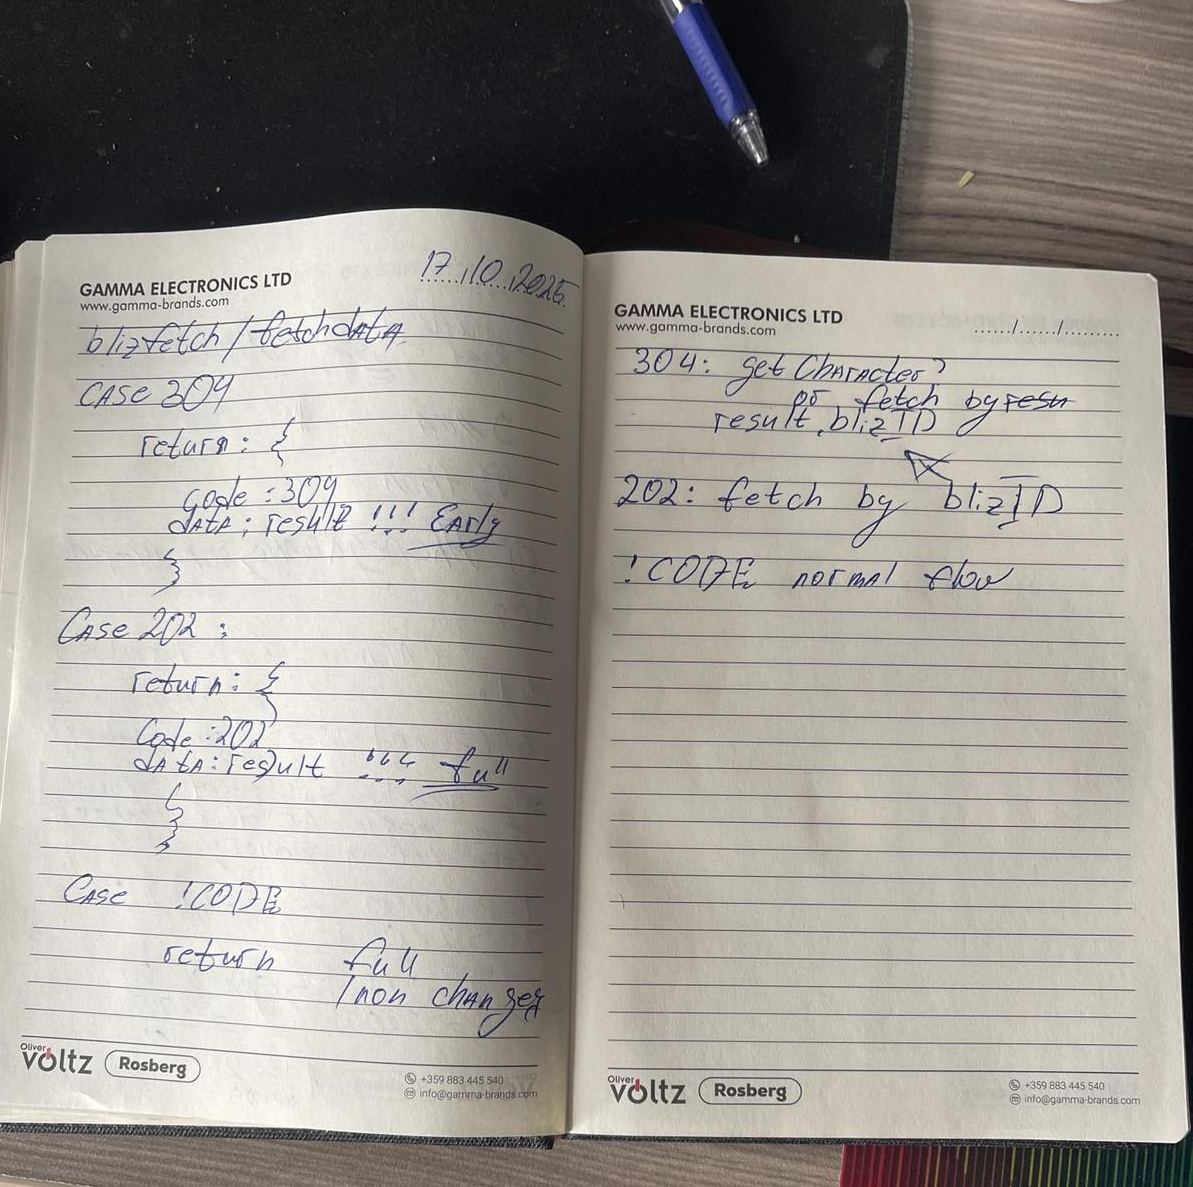 GAMMA ELECTRONICS LTD
www.gamma-brands.com
17.10.2025
blizfetch/fetchdata
CASE 304
return: {
code: 304
data: result !!! Early
}
Case 202:
return: {
Code: 202
data: result !!! full
}
Case !CODE
return full
/non changes
Oliver
voltz Rosberg
+359 883 445 540
info@gamma-brands.com
GAMMA ELECTRONICS LTD
www.gamma-brands.com
....../....../............
304: get Character?
or fetch by resu
result.blizID
202: fetch by blizID
!CODE normal flow
Oliver
voltz Rosberg
+359 883 445 540
info@gamma-brands.com